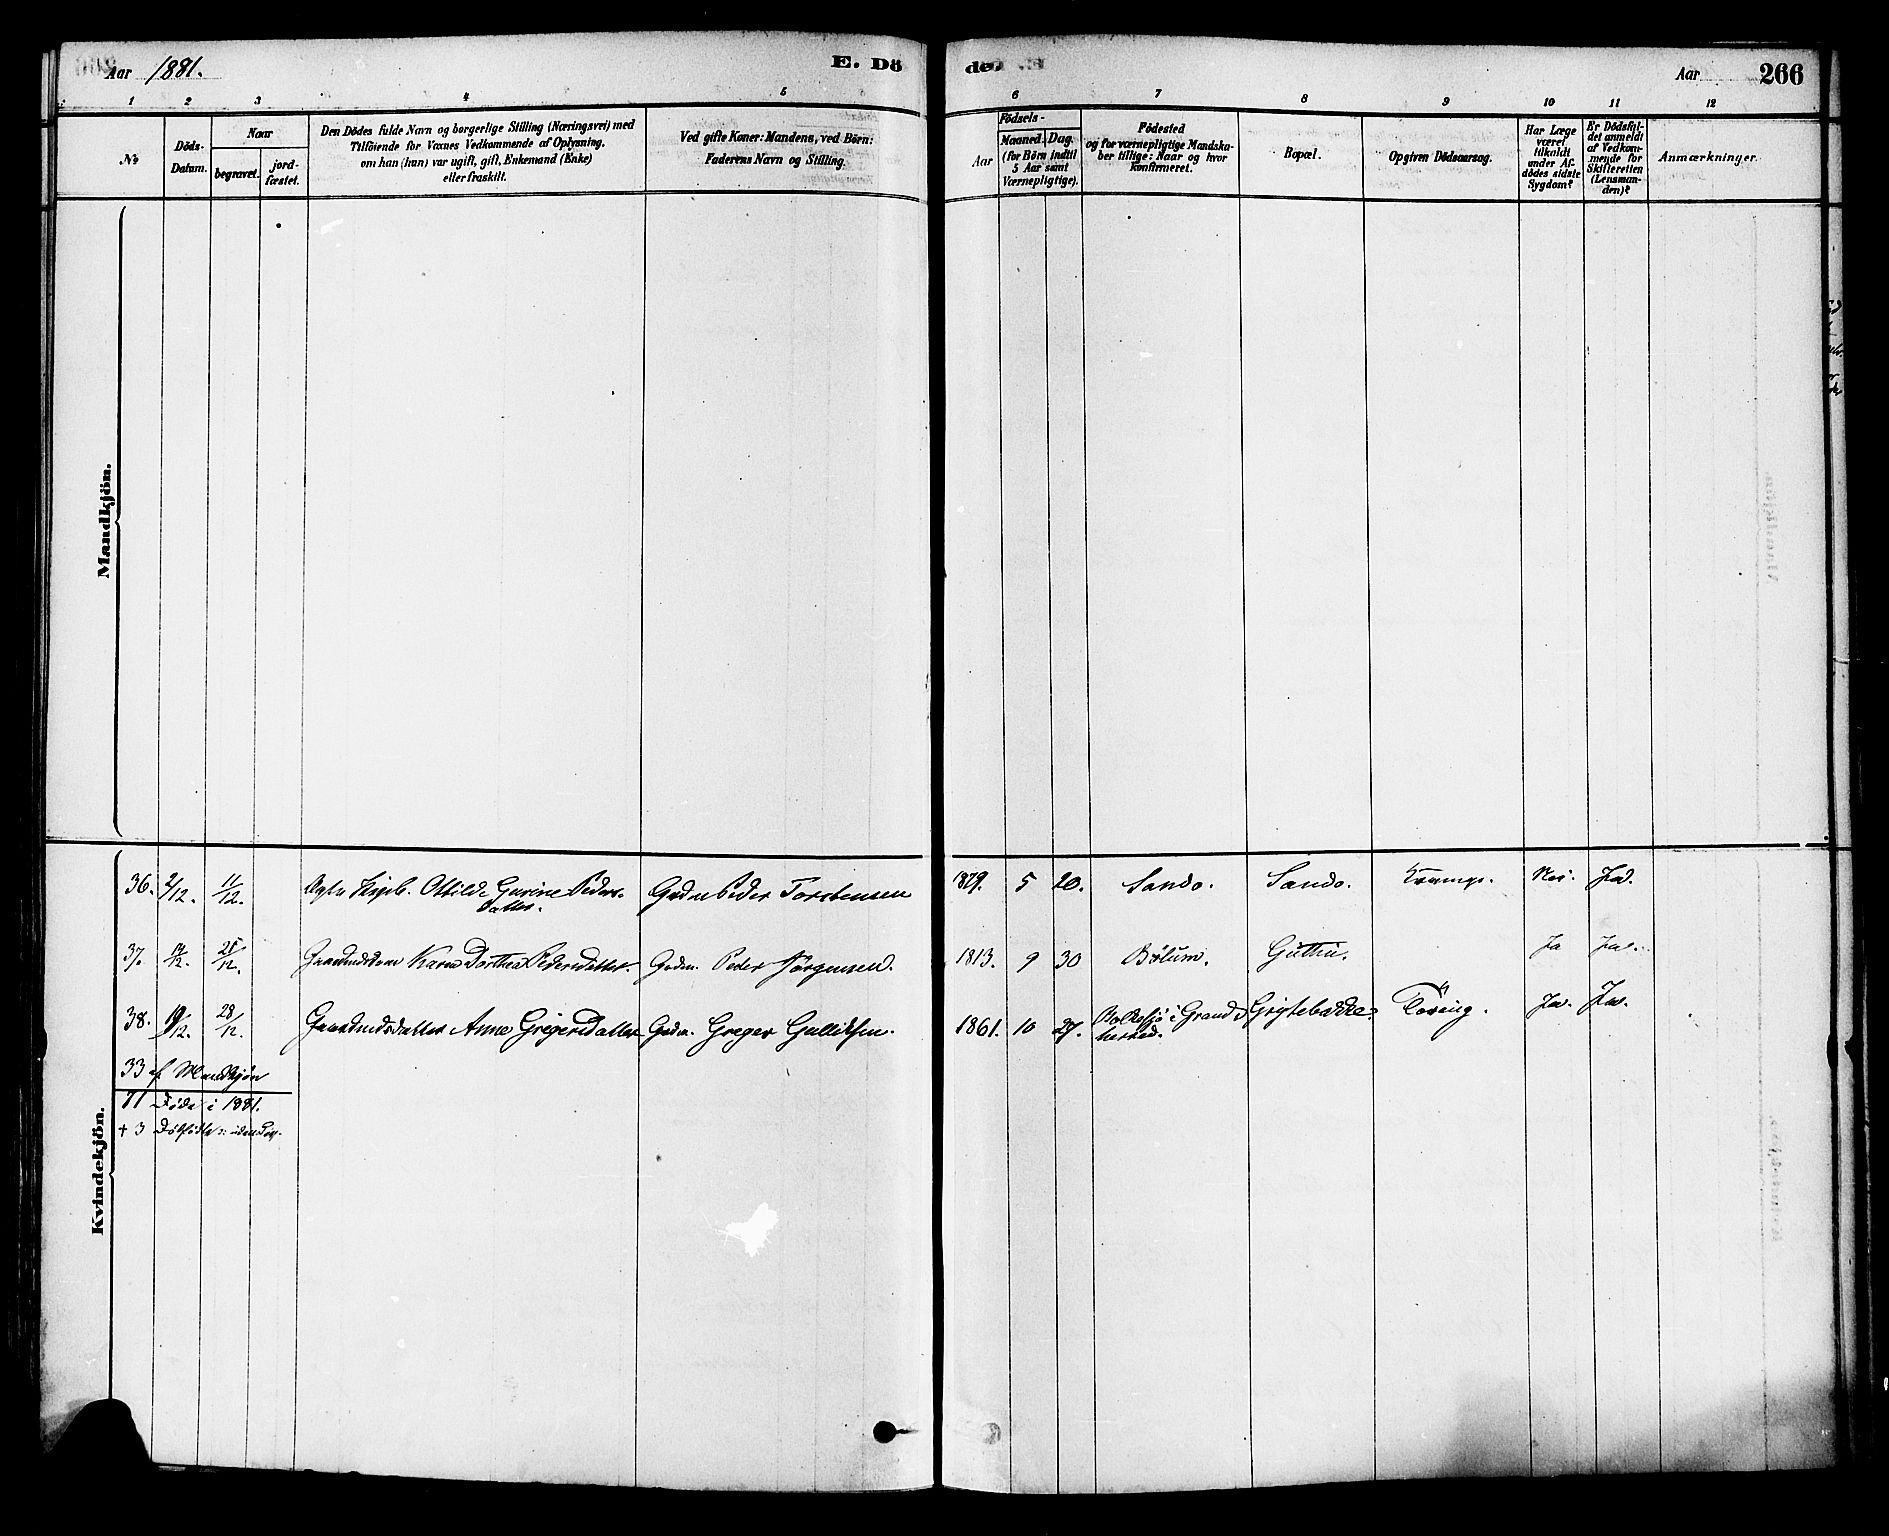 Aar 1881.
E. Dö
de.
Aar
266
1 2 3 4 5
6 7 8 9 10 11 12
No
Döds-
Datum.
Naar
begravet.
jord-
fæstet.
Den Dödes fulde Navn og borgerlige Stilling (Næringsvei) med
Tilföiende for Voxnes Vedkommende af Oplysning,
om han (hun) var ugift, gift, Enkemand (Enke)
eller fraskilt.
Ved gifte Koner: Mandens, ved Börn:
Faderens Navn og Stilling.
Födsels-
Aar
Maaned.
Dag.
(for Börn indtil
5 Aar samt
Værnepligtige).
Födested
og for værnepligtige Mandska-
ber tillige: Naar og hvor
Konfirmeret.
Bopæl.
Opgiven Dödsaarsag.
Har Læge
været
tilkaldt
under Af-
dödes sidste
Sygdom?
Er Dödsfal-
det anmeldt
af Vedkom-
mende for
Skifteretten
(Lensman-
den)?
Anmærkninger.
Mandkjön.
Kvindekjön.
36. 2/12. 11/12. Ottilde Gurine Peders-
datter. Gdm Peder Torstensen 1879. 5 20. Sando. Sando. Nei. Ja.
37. 14/12. 21/12. Karen Dorthea Pedersdatter. Gdm. Peder Jörgensen. 1813. 9 30 Bölum. Guthu. Ja Ja.
38. 19/12. 28/12. Gaardmdsdatter Anne Grégersdatter Gdm. Greger Gullichsen. 1861. 10 27. Bolkesjö i Grans-
herred. Grytebakke. Tæring. Ja. Ja.
33 af Mandkjön
71 Döde i 1881.
+ 3 Dödfödte